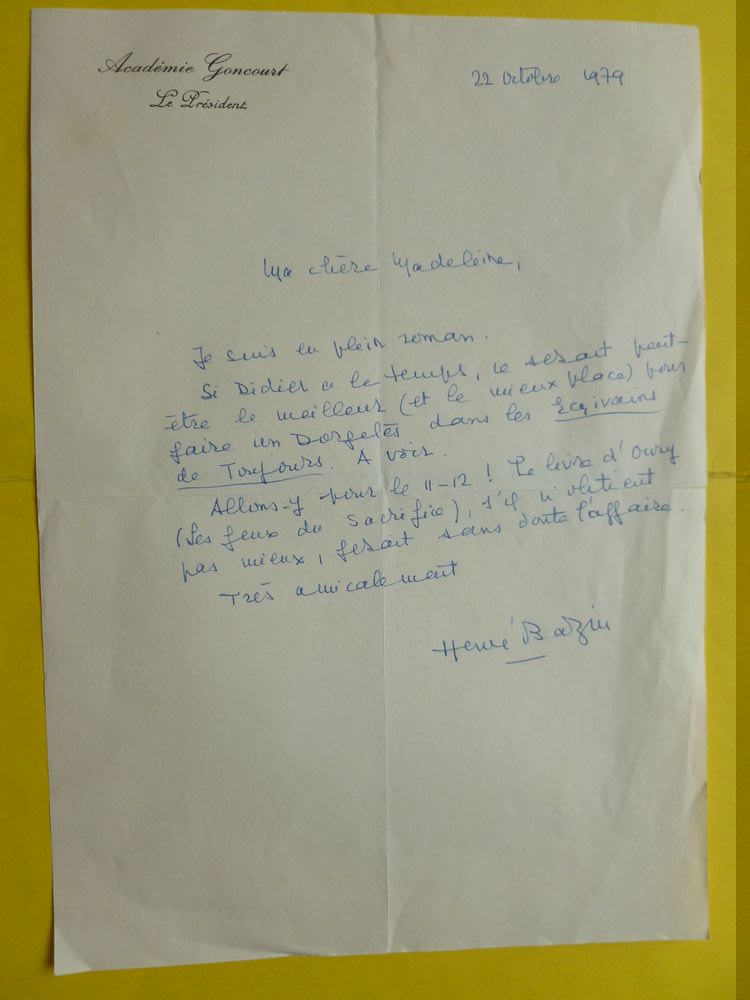 Académie Goncourt
Le Président
22 Octobre 1979
Ma chère Madeleine,
Je suis en plein roman.
Si Didier a le temps, ce serait peut-
être le meilleur (et le mieux placé) pour
faire un Dorgelès dans les Ecrivains
de Toujours. A voir.
Allons-y pour le 11-12 ! Le livre d'Oury
(Les feux du Sacrifice), s'il n'obtient
pas mieux, ferait sans doute l'affaire.
Très amicalement
Hervé Bazin